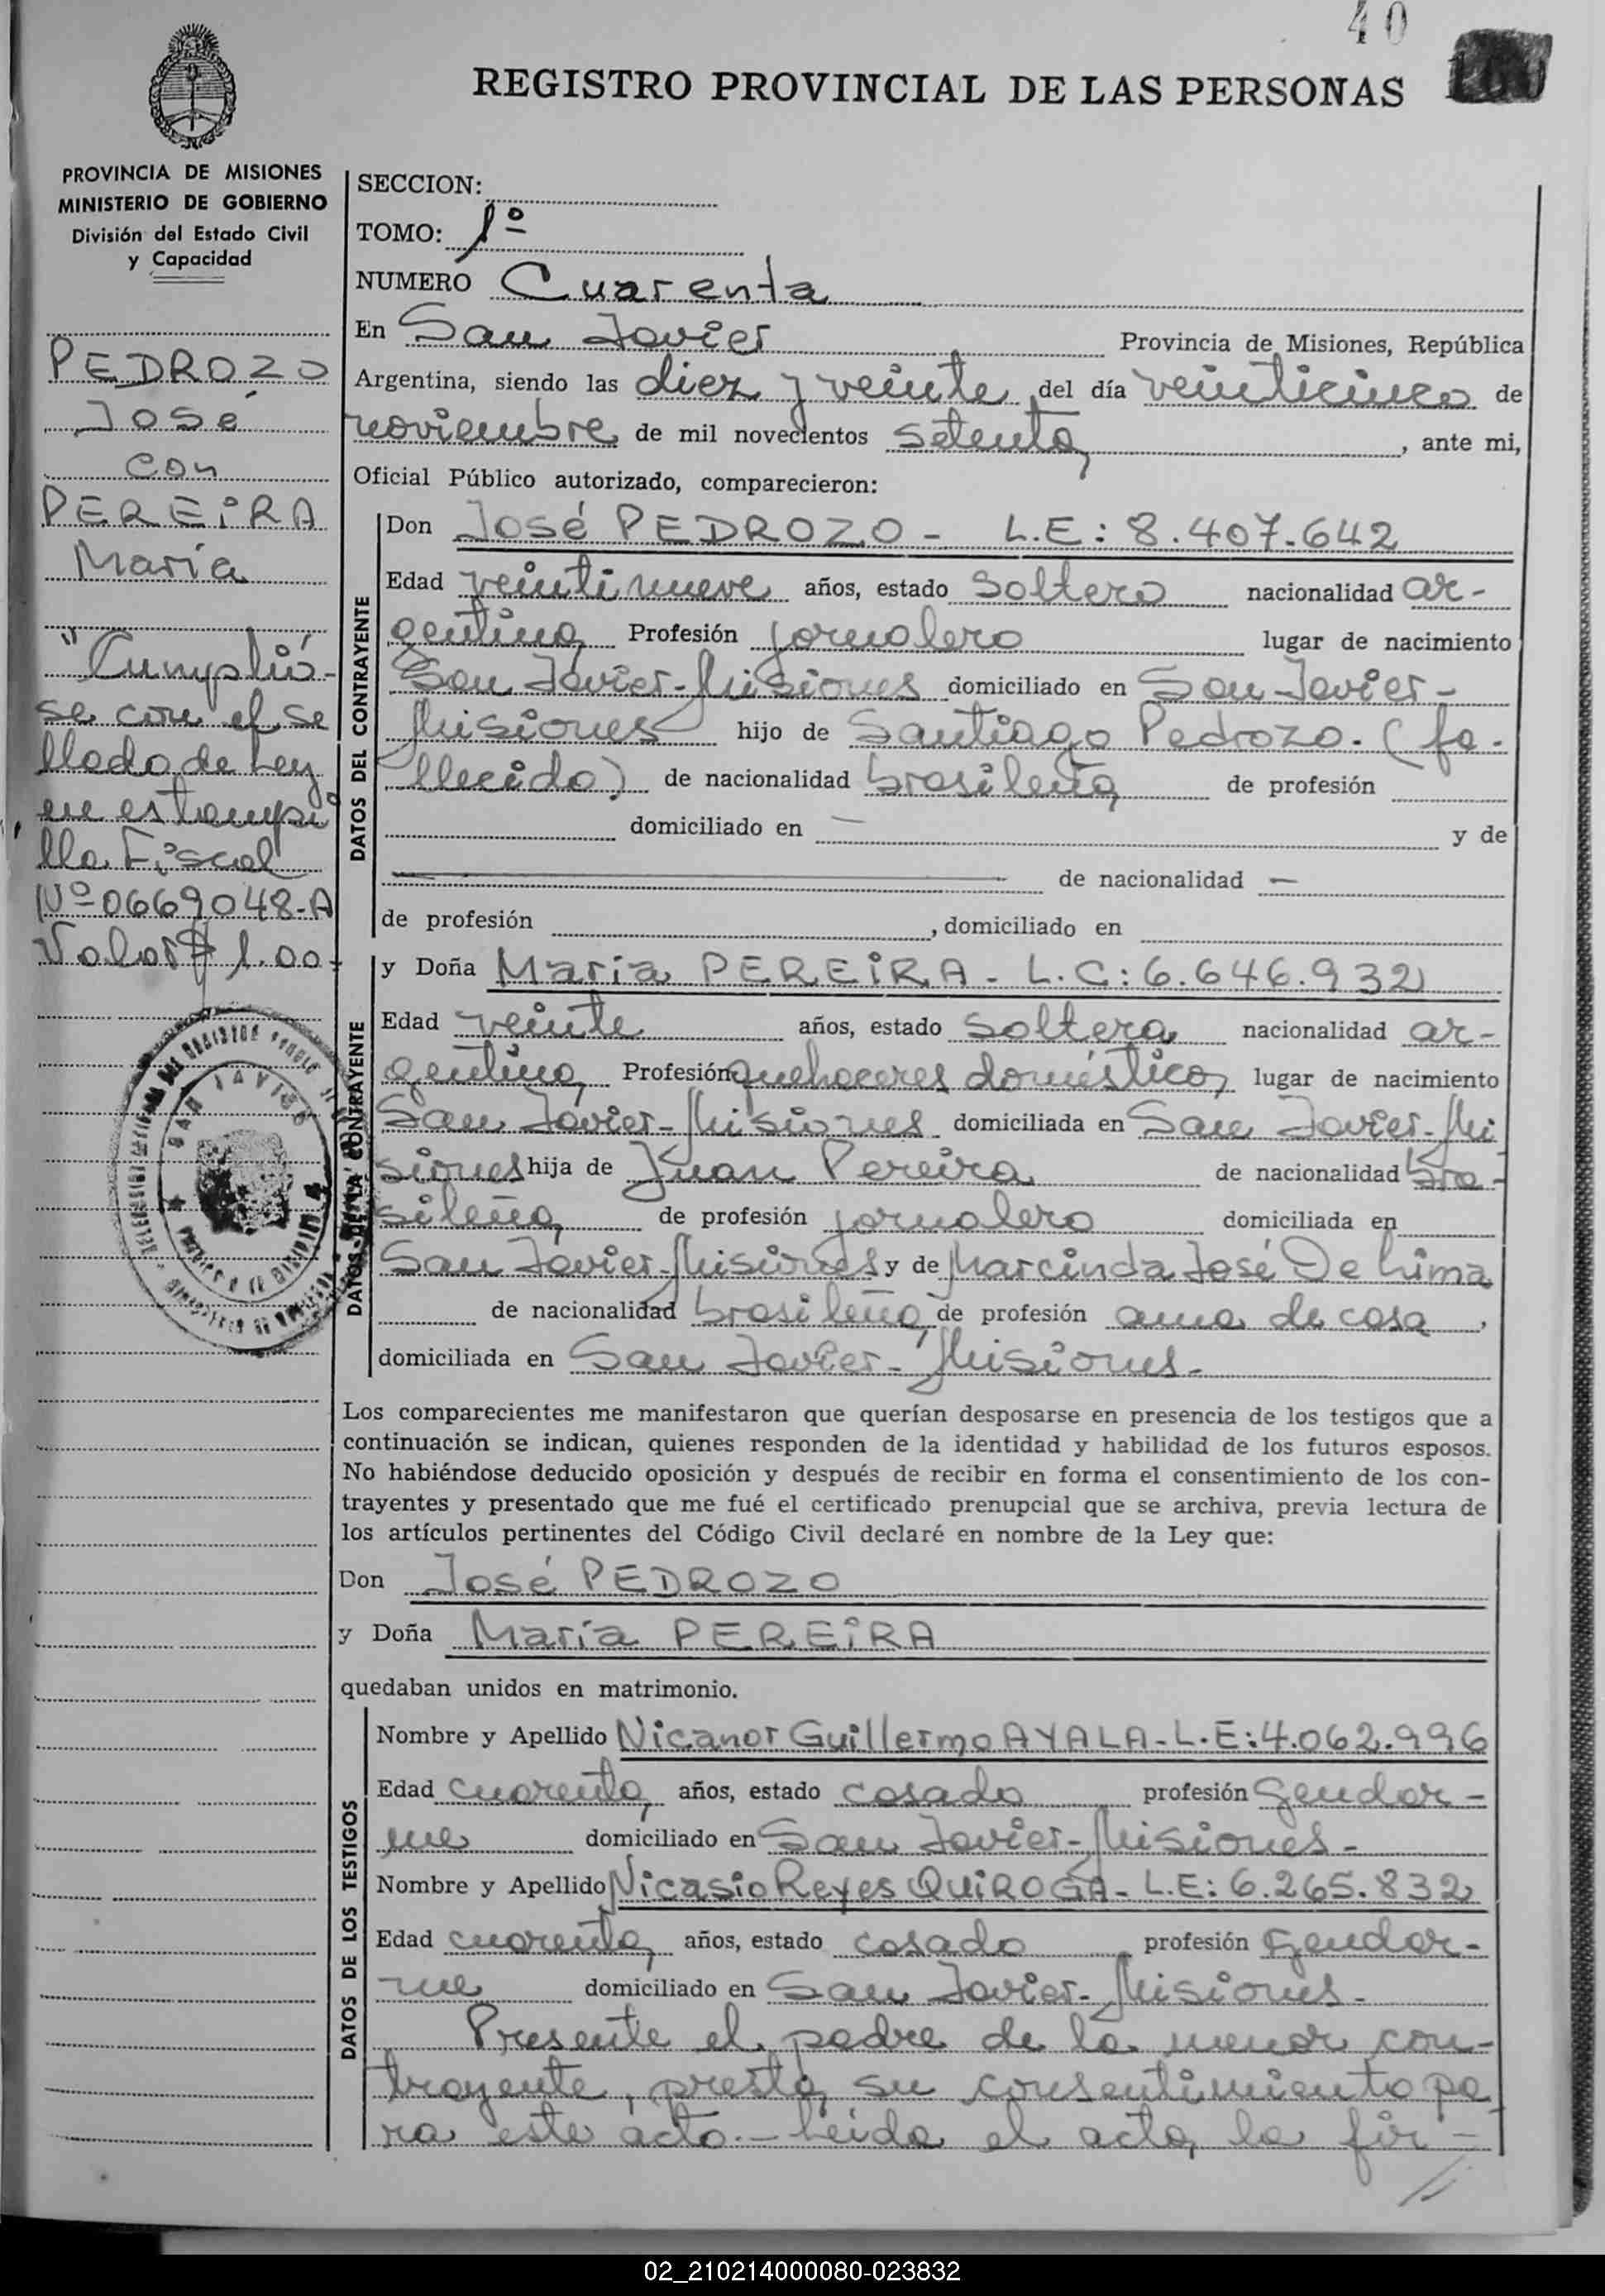 40
REGISTRO PROVINCIAL DE LAS PERSONAS
PROVINCIA DE MISIONES
MINISTERIO DE GOBIERNO
División del Estado Civil
y Capacidad
PEDROZO
José
con
PEREIRA
María
"Cumplió-
se con el se
llado de Ley
en estampi
lla Fiscal
Nº 0669048-A
Valor $ 1.00-
SAN JAVIER
SECCION:
TOMO: 1º
NUMERO Cuarenta
En San Javier Provincia de Misiones, República
Argentina, siendo las diez y veinte del día veinticinco de
noviembre de mil novecientos setenta, ante mi,
Oficial Público autorizado, comparecieron:
DATOS DEL CONTRAYENTE
Don José PEDROZO - L.E: 8.407.642
Edad veintinueve años, estado soltero nacionalidad ar-
gentina Profesión jornalero lugar de nacimiento
San Javier-Misiones domiciliado en San Javier-
Misiones hijo de Santiago Pedrozo. (fa-
llecido) de nacionalidad brasileña de profesión
domiciliado en — y de
— de nacionalidad —
de profesión , domiciliado en
DATOS DE LA CONTRAYENTE
y Doña María PEREIRA - L.C: 6.646.932
Edad veinte años, estado soltera nacionalidad ar-
gentina Profesión quehaceres doméstico, lugar de nacimiento
San Javier-Misiones domiciliada en San Javier-Mi
siones hija de Juan Pereira de nacionalidad bra-
sileña de profesión jornalero domiciliada en
San Javier-Misiones y de Marcinda José De Lima
de nacionalidad brasileña de profesión ama de casa,
domiciliada en San Javier-Misiones-
Los comparecientes me manifestaron que querían desposarse en presencia de los testigos que a
continuación se indican, quienes responden de la identidad y habilidad de los futuros esposos.
No habiéndose deducido oposición y después de recibir en forma el consentimiento de los con-
trayentes y presentado que me fué el certificado prenupcial que se archiva, previa lectura de
los artículos pertinentes del Código Civil declaré en nombre de la Ley que:
Don José PEDROZO
y Doña María PEREIRA
quedaban unidos en matrimonio.
DATOS DE LOS TESTIGOS
Nombre y Apellido Nicanor Guillermo AYALA-L.E: 4.062.996
Edad cuarenta, años, estado casado profesión Gendar-
me domiciliado en San Javier-Misiones-
Nombre y Apellido Nicasio Reyes QUIROGA- L.E: 6.265.832
Edad cuarenta, años, estado casado profesión Gendar-
me domiciliado en San Javier-Misiones-
Presente el padre de la menor con-
trayente, presta su consentimiento pa
ra este acto.- Leída el acta, la fir-
02_210214000080-023832